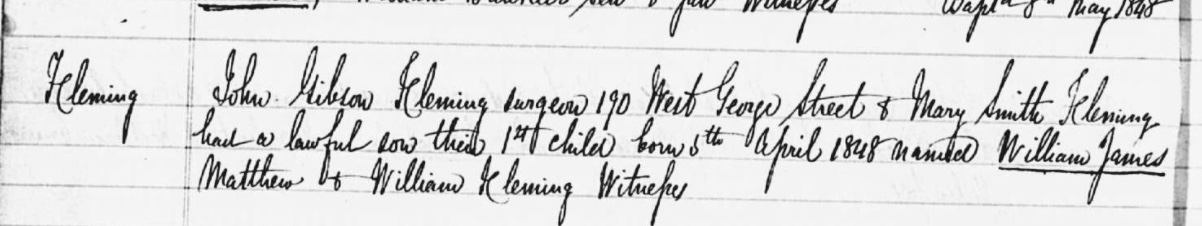 William sen & jun Witnesses Bapt^d 8th May 1848
Fleming John Gibson Fleming surgeon 190 West George Street & Mary Smith Fleming
had a lawful son their 1st child born 5th April 1848 named William James
Matthew & William Fleming Witnesses